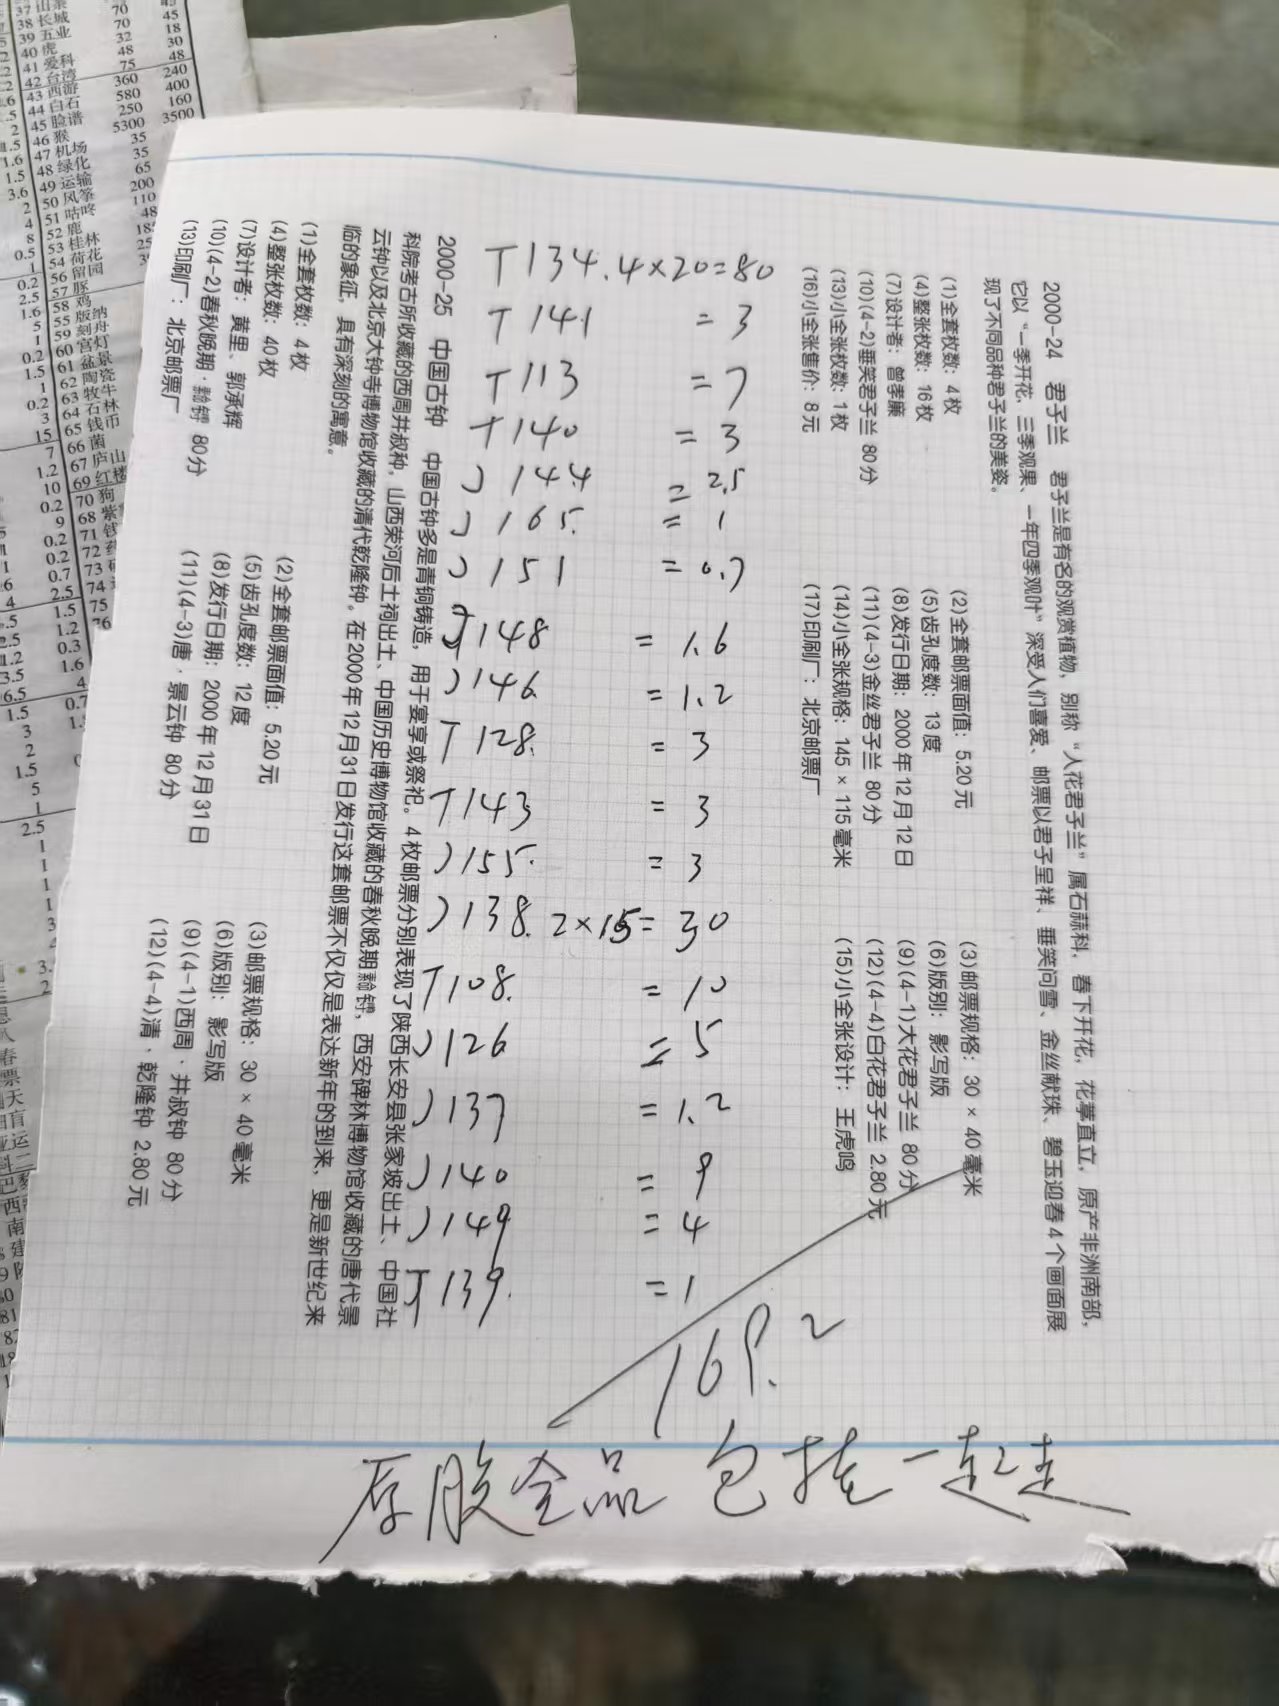 T134. 4×20=80
T141 = 3
T113 = 7
T140 = 3
J144 = 2.5
J165. = 1
J151 = 0.7
J148 = 1.6
J146 = 1.2
T128. = 3
T143 = 3
J155. = 3
J138. 2×15=30
T108. = 10
J126 = 5
J137 = 1.2
J140 = 9
J149 = 4
J139. = 1
169.2
原胶全品 包挂一起走
2000-24 君子兰 君子兰是有名的观赏植物，别称“人花君子兰”属石蒜科，春下开花，花葶直立，原产非洲南部，
它以“一季开花、三季观果、一年四季观叶”深受人们喜爱、邮票以君子呈祥、垂笑问雪、金丝献珠、碧玉迎春4个画面展
现了不同品种君子兰的美姿。
(1)全套枚数：4枚 (2)全套邮票面值：5.20元 (3)邮票规格：30×40毫米
(4)整张枚数：16枚 (5)齿孔度数：13度 (6)版别：影写版
(7)设计者：曾孝廉 (8)发行日期：2000年12月12日 (9)(4-1)大花君子兰 80分
(10)(4-2)垂笑君子兰 80分 (11)(4-3)金丝君子兰 80分 (12)(4-4)白花君子兰 2.80元
(13)小全张枚数：1枚 (14)小全张规格：145×115毫米 (15)小全张设计：王虎鸣
(16)小全张售价：8元 (17)印刷厂：北京邮票厂
2000-25 中国古钟 中国古钟多是青铜铸造，用于宴享或祭祀。4枚邮票分别表现了陕西长安县张家坡出土、中国社
科院考古所收藏的西周井叔种，山西荣河后土祠出土、中国历史博物馆收藏的春秋晚期 镈，西安碑林博物馆收藏的唐代景
云钟以及北京大钟寺博物馆收藏的清代乾隆钟。在2000年12月31日发行这套邮票不仅仅是表达新年的到来，更是新世纪来
临的象征，具有深刻的寓意。
(1)全套枚数：4枚 (2)全套邮票面值：5.20元 (3)邮票规格：30×40毫米
(4)整张枚数：40枚 (5)齿孔度数：12度 (6)版别：影写版
(7)设计者：黄里、郭承辉 (8)发行日期：2000年12月31日 (9)(4-1)西周·井叔钟 80分
(10)(4-2)春秋晚期· 镈 80分 (11)(4-3)唐·景云钟 80分 (12)(4-4)清·乾隆钟 2.80元
(13)印刷厂：北京邮票厂
38 长城 70
39 五业 70 45
40 虎 32 18
41 爱科 48 30
42 台湾 75 48
43 西游 360 240
44 白石 580 400
45 脸谱 250 160
46 猴 5300 3500
47 机场 35
48 绿化 35
49 运输 65
50 风筝 200
51 咕咚 110
52 鹿 48
53 桂林
54 荷花
56 留园
57 豚
58 鸡
55 版纳
59 刻舟
60 宫灯
61 盆景
62 陶瓷
63 牧牛
64 石林
65 钱币
66 菌
67 庐山
69 红楼
70 狗